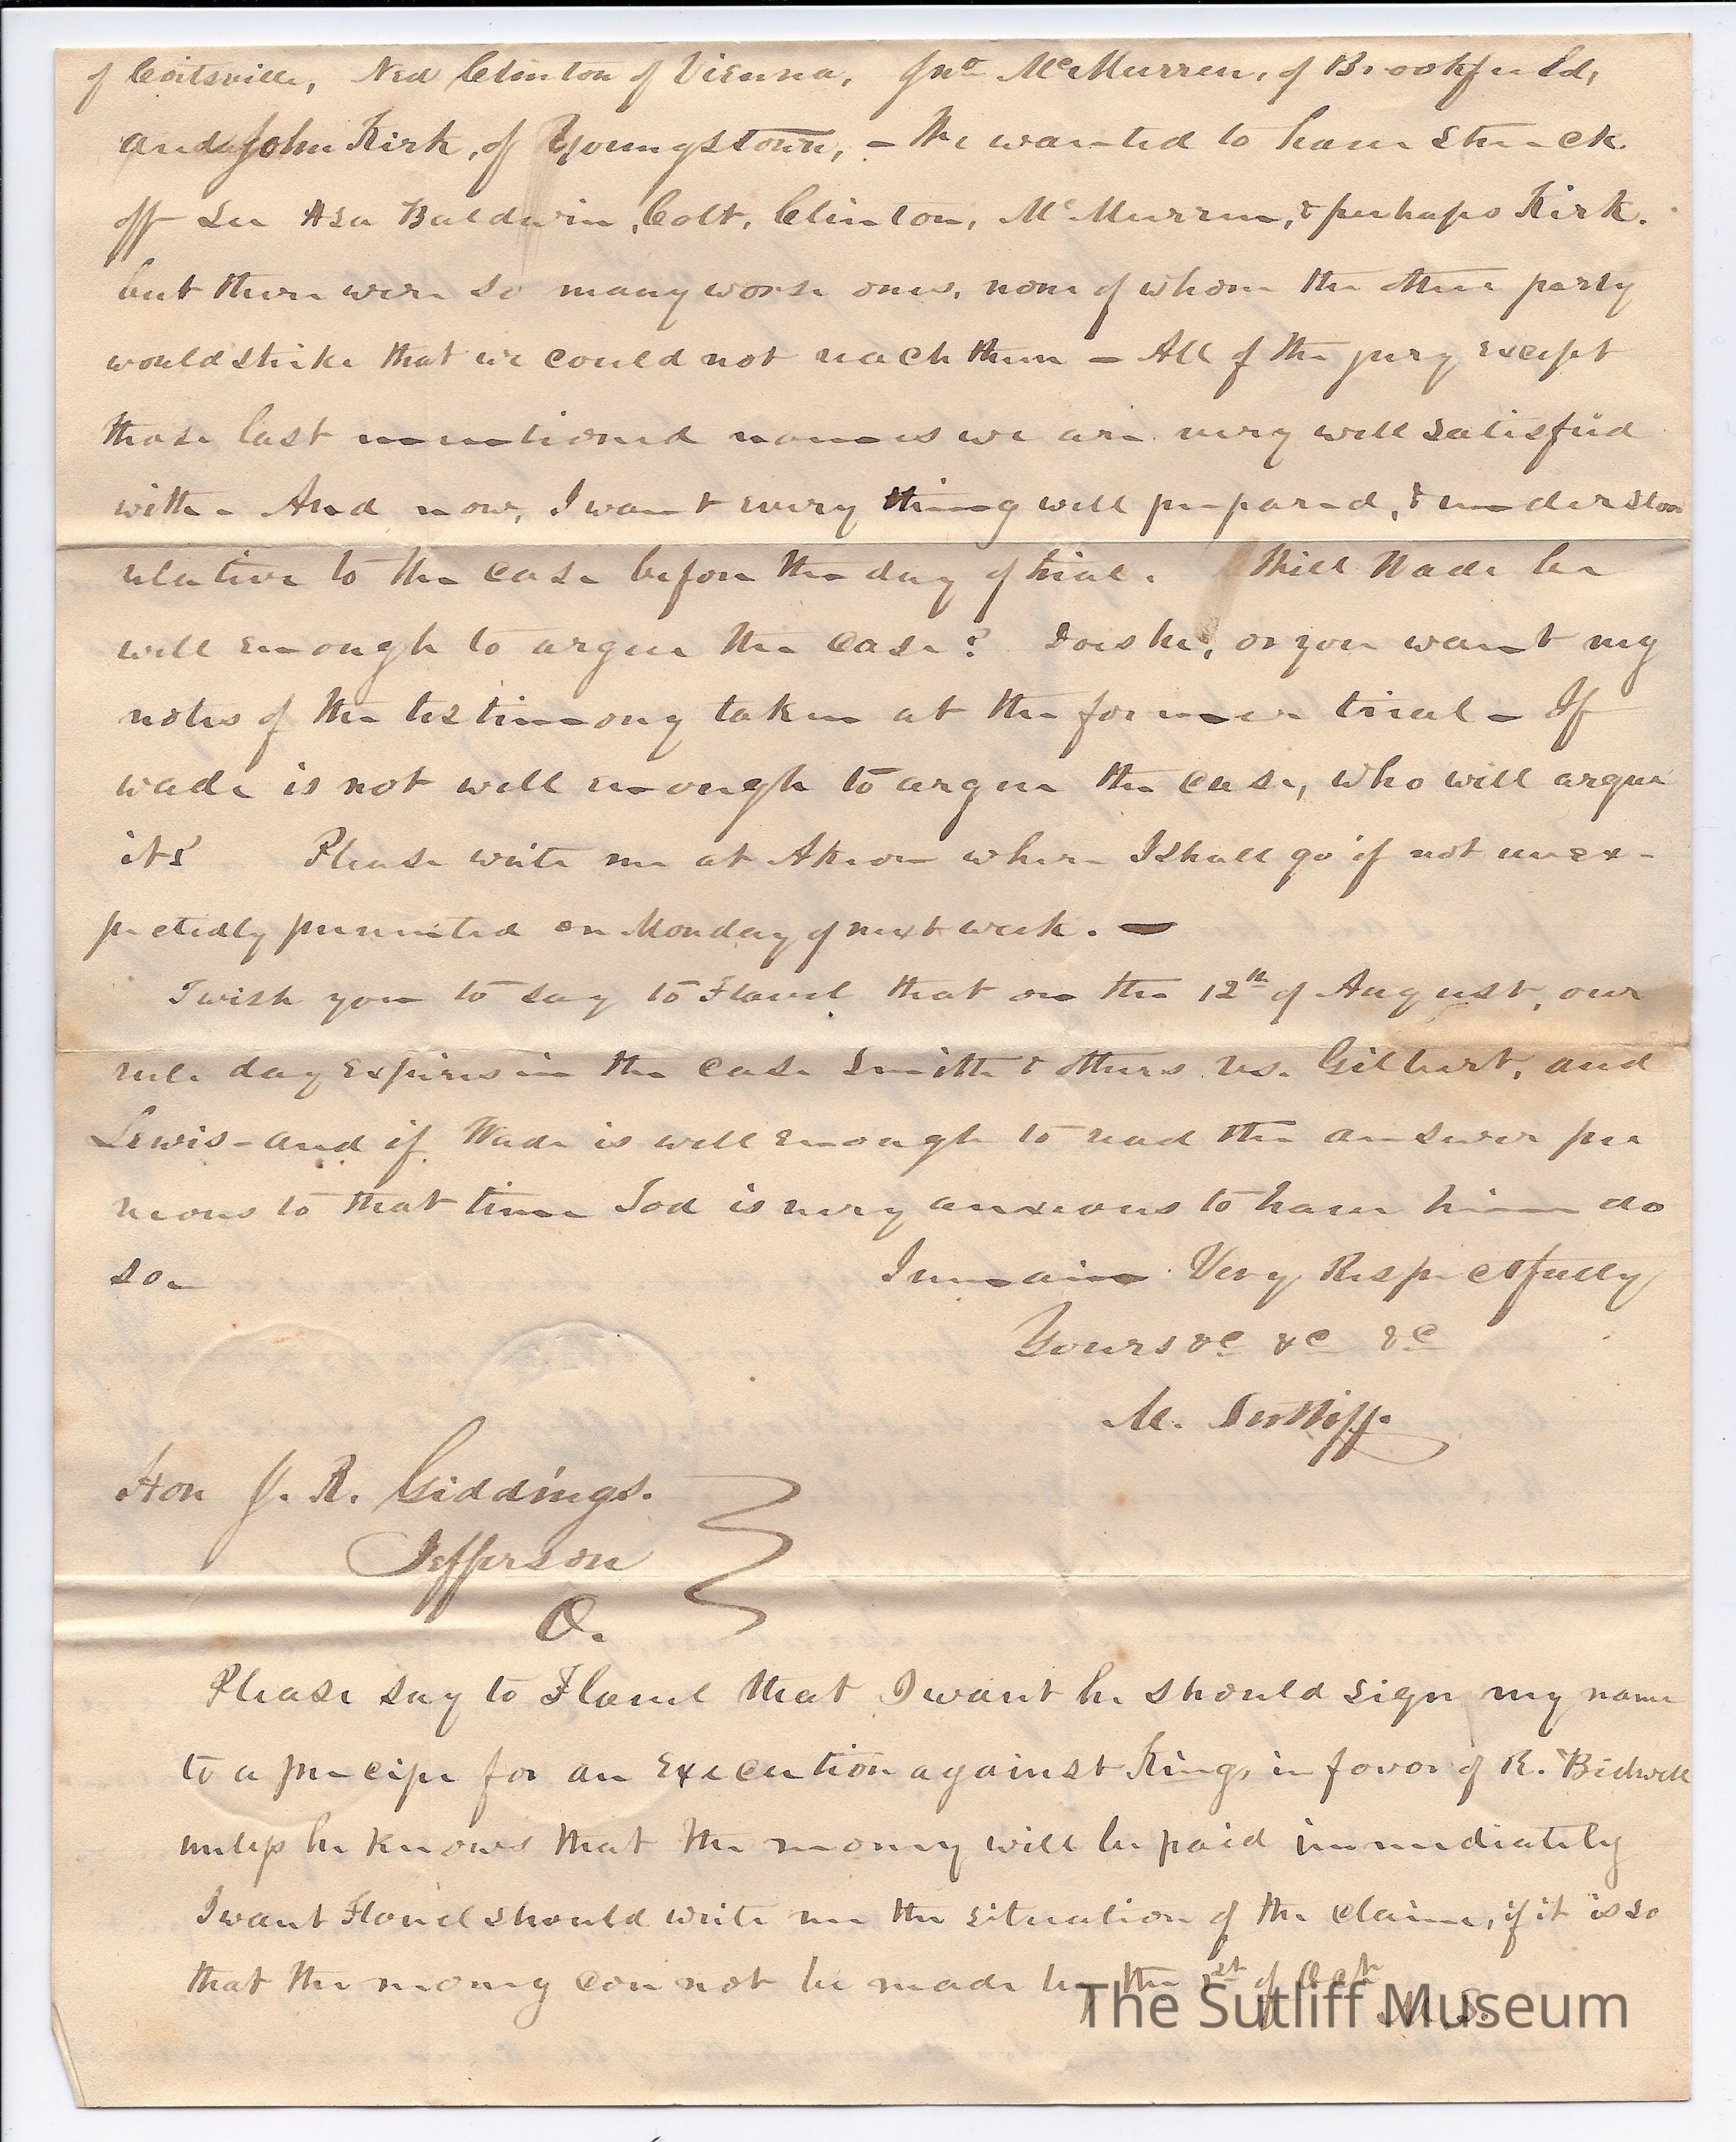 of Coitsville, Ned Clinton of Vienna, Jno McMurren, of Brookfield,
and John Kirk, of Youngstown, - We wanted to have struck
off Asa Baldwin, Colt, Clinton, McMurren, & perhaps Kirk.
but there were so many worse ones, none of whom the other party
would strike that we could not reach them - All of the jury except
those last mentioned names we are very well satisfied
with - And now, I want every thing well prepared, & understood
relative to the case before the day of trial. Will Wade be
well enough to argue the case? Does he, or you want my
notes of the testimony taken at the former trial - If
wade is not well enough to argue the case, who will argue
it? Please write me at Akron where I shall go if not unex-
pectedly prevented on Monday of next week. -
I wish you to say to Flavel that on the 12th of August, our
rule day expires in the case Smith & others vs. Gilbert, and
Lewis - and if Wade is well enough to read the answer pre
vious to that time Tod is very anxious to have him do
so - I remain Very Respectfully
Yours &c &c &c
M. Sutliff.
Hon J. R. Giddings.
Jefferson
O.
Please say to Flavel that I want he should sign my name
to a precipe for an execution against King, in favor of R. Bidwell
unless he knows that the money will be paid immediately
I want Flavel should write me the situation of the claim, if it is so
that the money can not be made by the 1st of Oct
M. S.
The Sutliff Museum